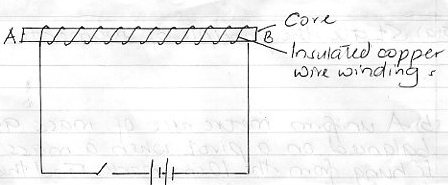 Core
A
B
Insulated copper
wire windings